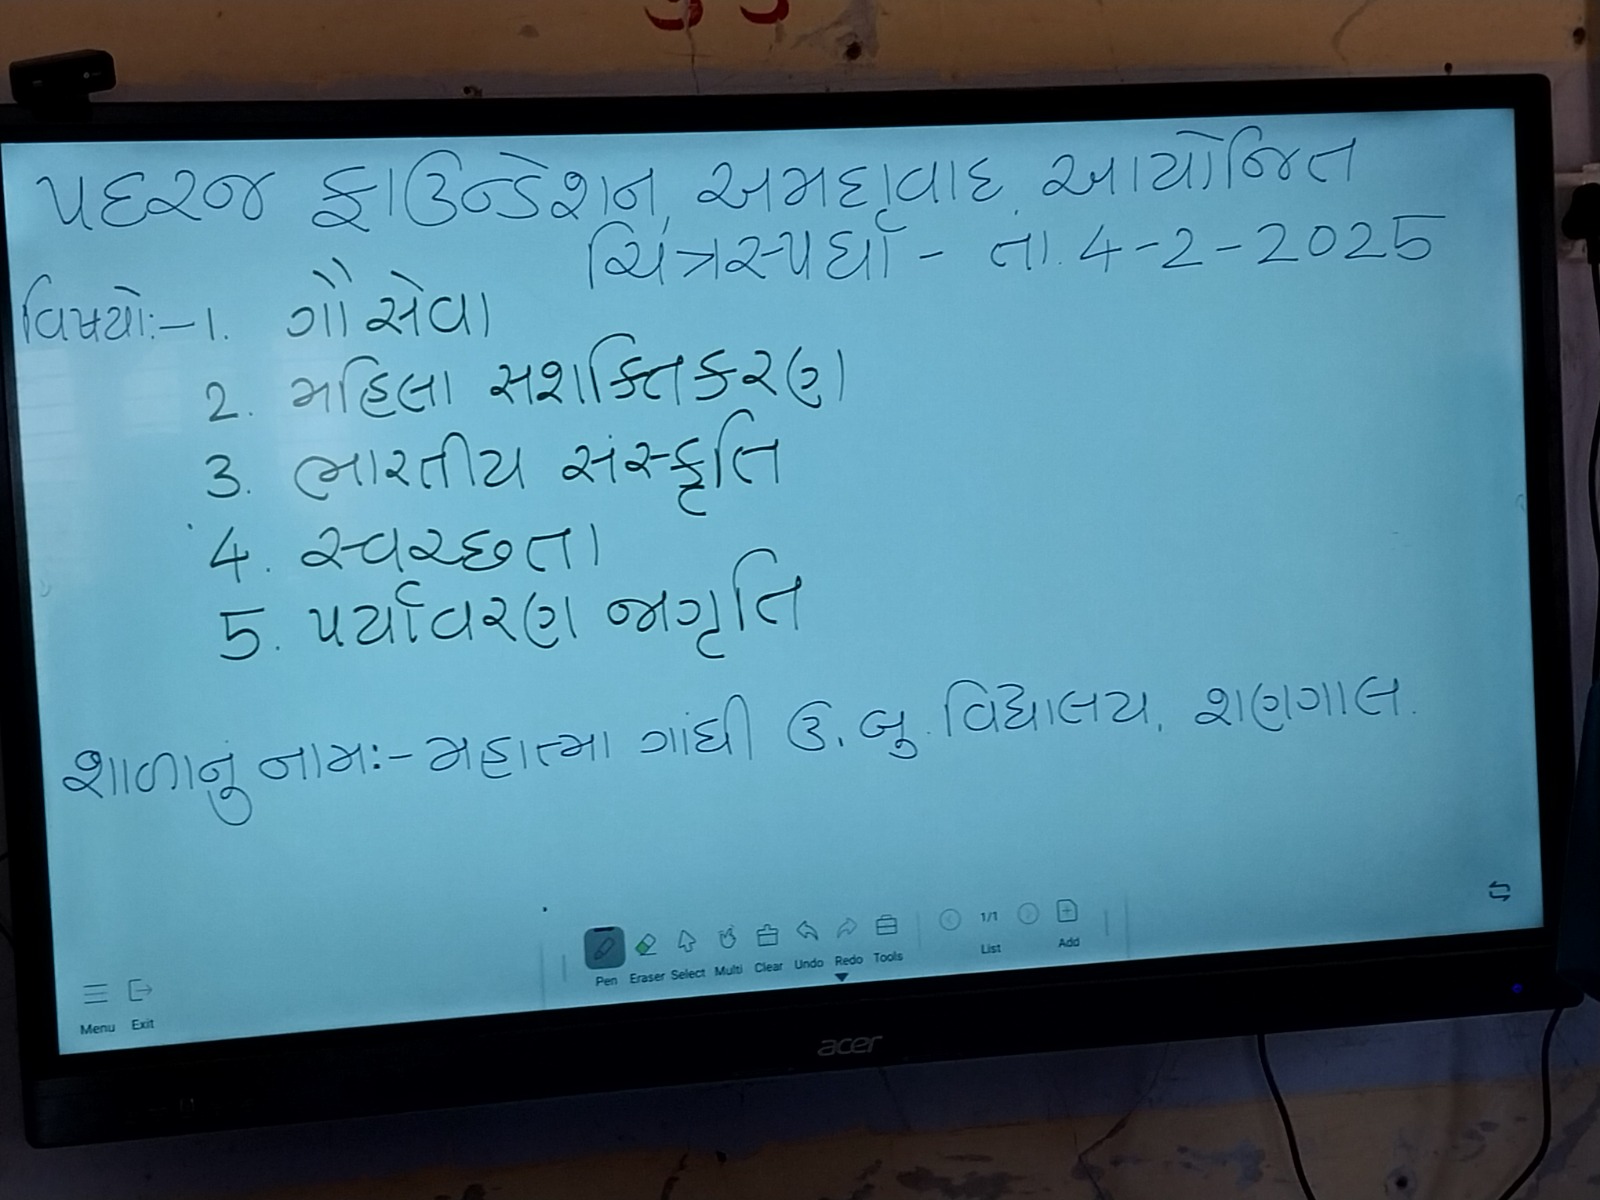 પદરજ ફાઉન્ડેશન, અમદાવાદ. આયોજિત
ચિત્રસ્પર્ધા - તા. 4-2-2025
વિષયો:- 1. ગૌ સેવા
2. મહિલા સશક્તિકરણ
3. ભારતીય સંસ્કૃતિ
4. સ્વચ્છતા
5. પર્યાવરણ જાગૃતિ
શાળાનું નામ:- મહાત્મા ગાંધી ઉ. બુ. વિદ્યાલય, શણગાલ.
Pen Eraser Select Multi Clear Undo Redo Tools 1/1 List Add
Menu Exit
acer